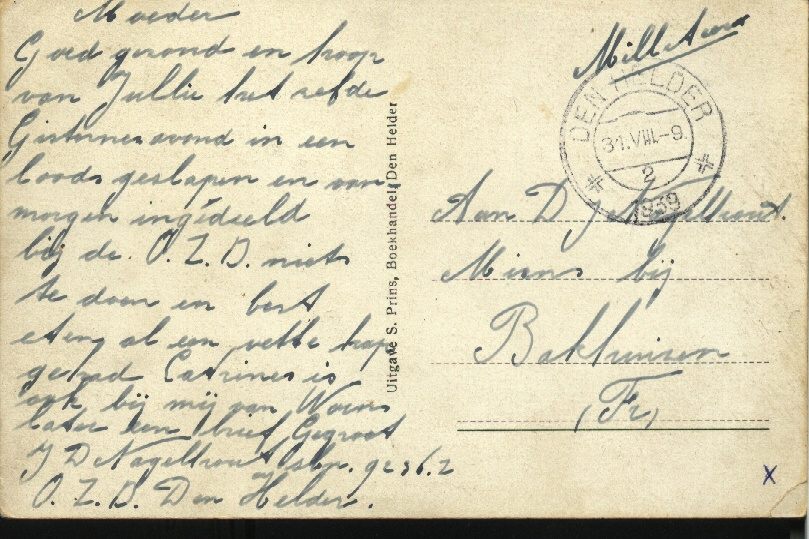 Moeder
Goed gezond en hoop
van Jullie het zelfde
Gisterenavond in een
loods geslapen en van
morgen ingedeeld
bij de O.Z.D. niets
te doen en best
eten al een vette hap
gehad Catrinus is
ook bij mij van Wouns
later een brief Gegroet
J D Nageltrout
O.Z.D. Den Helder.
Uitgave S. Prins, Boekhandel, Den Helder
DEN HELDER
31.VIII.-9
2
1939
Aan D J Nageltrout.
Mirns bij
Bakhuizen
(Fr)
X